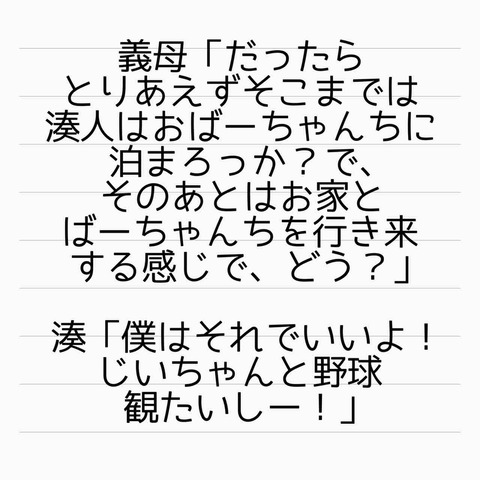 義母「だったら
とりあえずそこまでは
湊人はおばーちゃんちに
泊まろっか？で、
そのあとはお家と
ばーちゃんちを行き来
する感じで、どう？」
湊「僕はそれでいいよ！
じいちゃんと野球
観たいしー！」